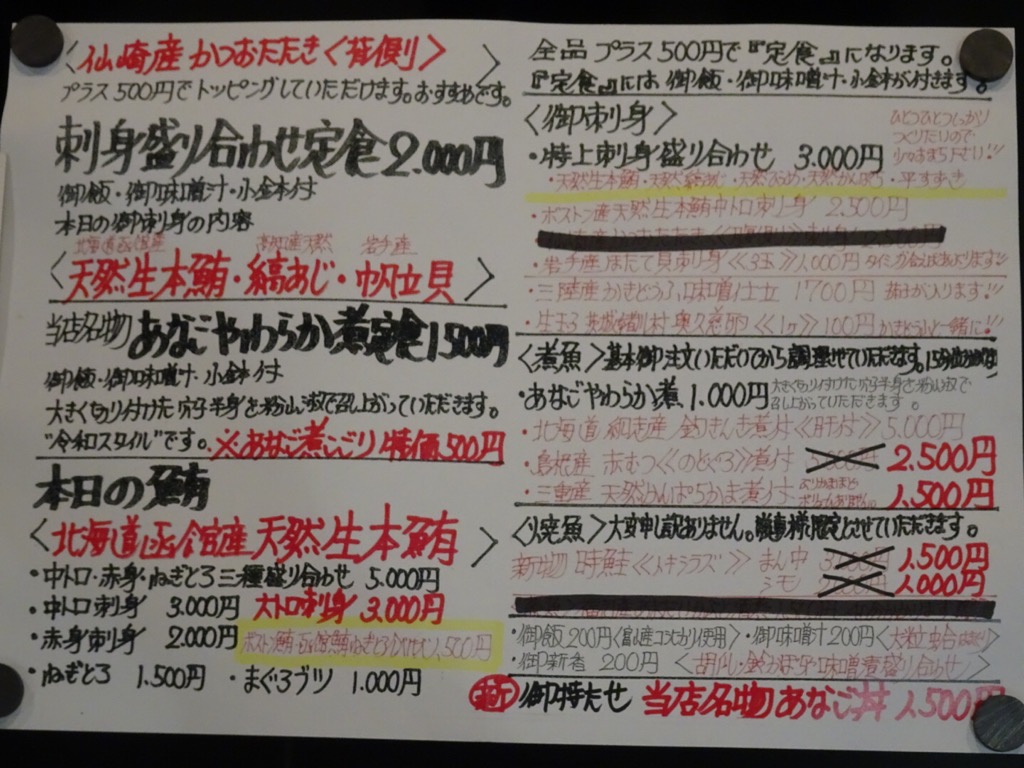 〈仙崎産 かつおたたき〈背側〉〉
プラス500円でトッピングしていただけます。おすすめです。
刺身盛り合わせ定食 2.000円
御飯・御味噌汁・小鉢付
本日の御刺身の内容
北海道函館産 高知産天然 岩手産
〈天然生本鮪・縞あじ・帆立貝〉
当店名物 あなごやわらか煮定食 1500円
御飯・御味噌汁・小鉢付
大きく切り付けた穴子半身を粉山椒で召し上がっていただきます。
"令和スタイル"です。※あなご煮こごり 特価500円
本日の鮪
〈北海道函館産 天然生本鮪〉
・中トロ・赤身・ねぎとろ三種盛り合わせ 5.000円
・中トロ刺身 3.000円 大トロ刺身 3.000円
・赤身刺身 2.000円 ボストン鮪・函館鮪ねぎとろ 1,500円
・ねぎとろ 1.500円 ・まぐろブツ 1.000円
全品 プラス500円で『定食』になります。
『定食』には 御飯・御味噌汁・小鉢が付きます。
〈御刺身〉
ひとつひとつしっかり
つくりたいので
少々お待ち下さい!!
・特上刺身盛り合わせ 3.000円
・天然生本鮪・天然縞あじ・天然ひらめ・天然かんぱち・平すずき
・ボストン産天然生本鮪中トロ刺身 2.500円
・岩手産ほたて貝刺身《3玉》1,000円 タイミング合えばあたります!!
・三陸産かきどうふ味噌仕立 1700円 柚子が入ります!!
・生玉子 茨城 奥久慈卵《1ヶ》100円 かきどうふと一緒に!!
〈煮魚〉基本御注文いただいてから調理させていただきます。15分
あなごやわらか煮 1.000円 大きく切り付けた穴子半身を粉山椒で
召し上がっていただきます。
・北海道網走産 釣きんき煮付《肝付》5.000円
・島根産 赤むつ《のどぐろ》煮付 2.500円
・三重産 天然かんぱちかま煮付 1.500円
〈焼魚〉大変申し訳ありません。御食事様限定とさせていただきます。
新物 時鮭《トキシラズ》 まん中 1.500円
シモ 1.000円
・御飯200円〈富山産コシヒカリ使用〉・御味噌汁200円〈大粒蛤〉
・御新香 200円
新 御持たせ 当店名物 あなご丼 1,500円